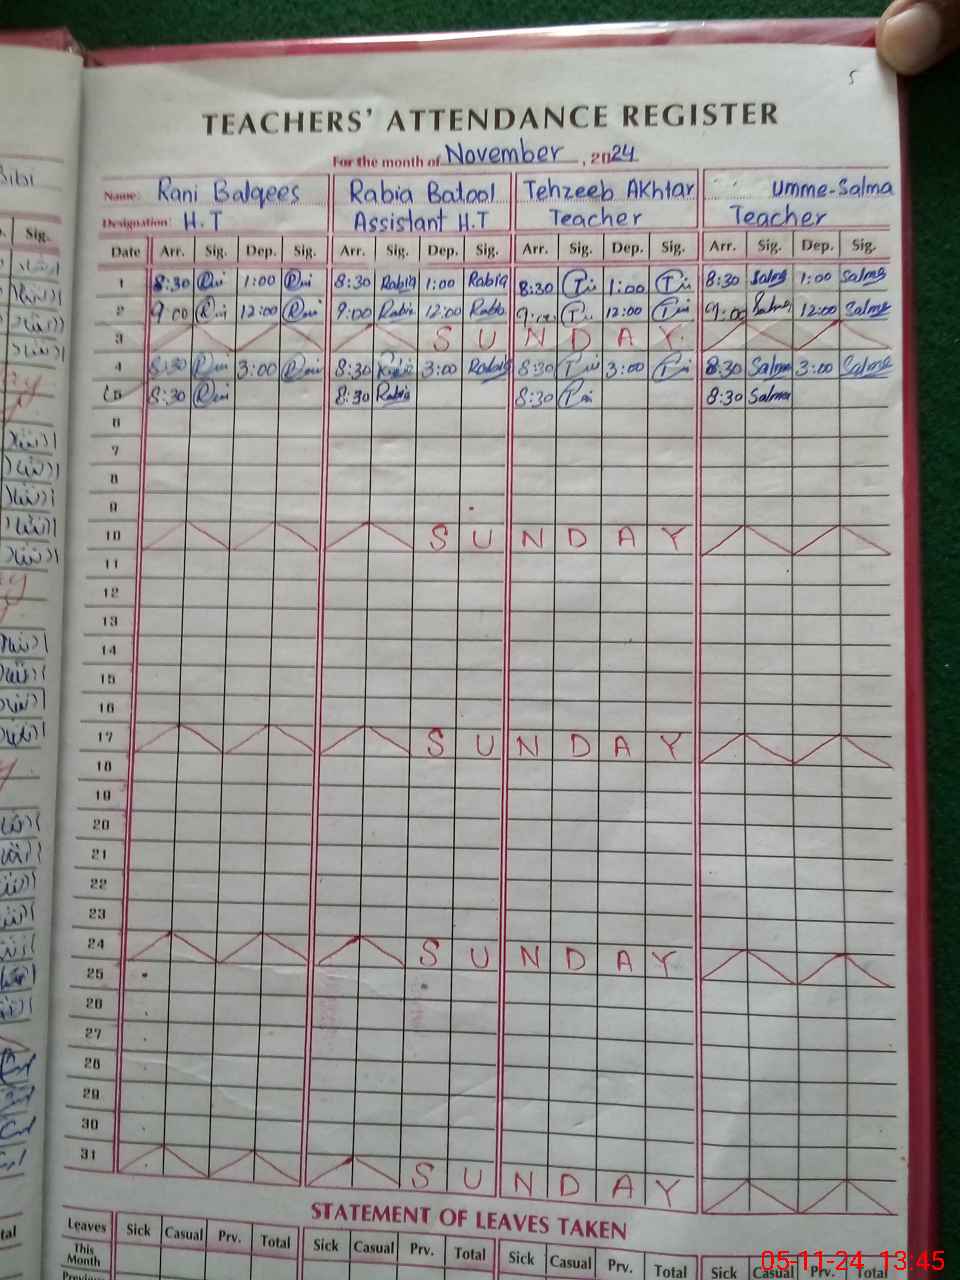 5
TEACHERS' ATTENDANCE REGISTER
For the month of November, 2024
Name: Rani Balqees Rabia Batool Tehzeeb Akhtar Umme-Salma
Designation: H.T Assistant H.T Teacher Teacher
Date Arr. Sig. Dep. Sig. Arr. Sig. Dep. Sig. Arr. Sig. Dep. Sig. Arr. Sig. Dep. Sig.
1 8:30 1:00 8:30 Rabia 1:00 Rabia 8:30 1:00 8:30 Salma 1:00 Salma
2 9:00 12:00 9:00 Rabia 12:00 Rabia 12:00 9:00 Salma 12:00 Salma
3 SUNDAY
4 8:30 3:00 8:30 Rabia 3:00 Rabia 8:30 3:00 8:30 Salma 3:00 Salma
5 8:30 8:30 Rabia 8:30 8:30 Salma
6
7
8
9
10 SUNDAY
11
12
13
14
15
16
17 SUNDAY
18
19
20
21
22
23
24 SUNDAY
25
26
27
28
29
30
31 SUNDAY
STATEMENT OF LEAVES TAKEN
Leaves Sick Casual Prv. Total Sick Casual Prv. Total Sick Casual Prv. Total Sick Casual Prv. Total
This Month
05-11-24 13:45